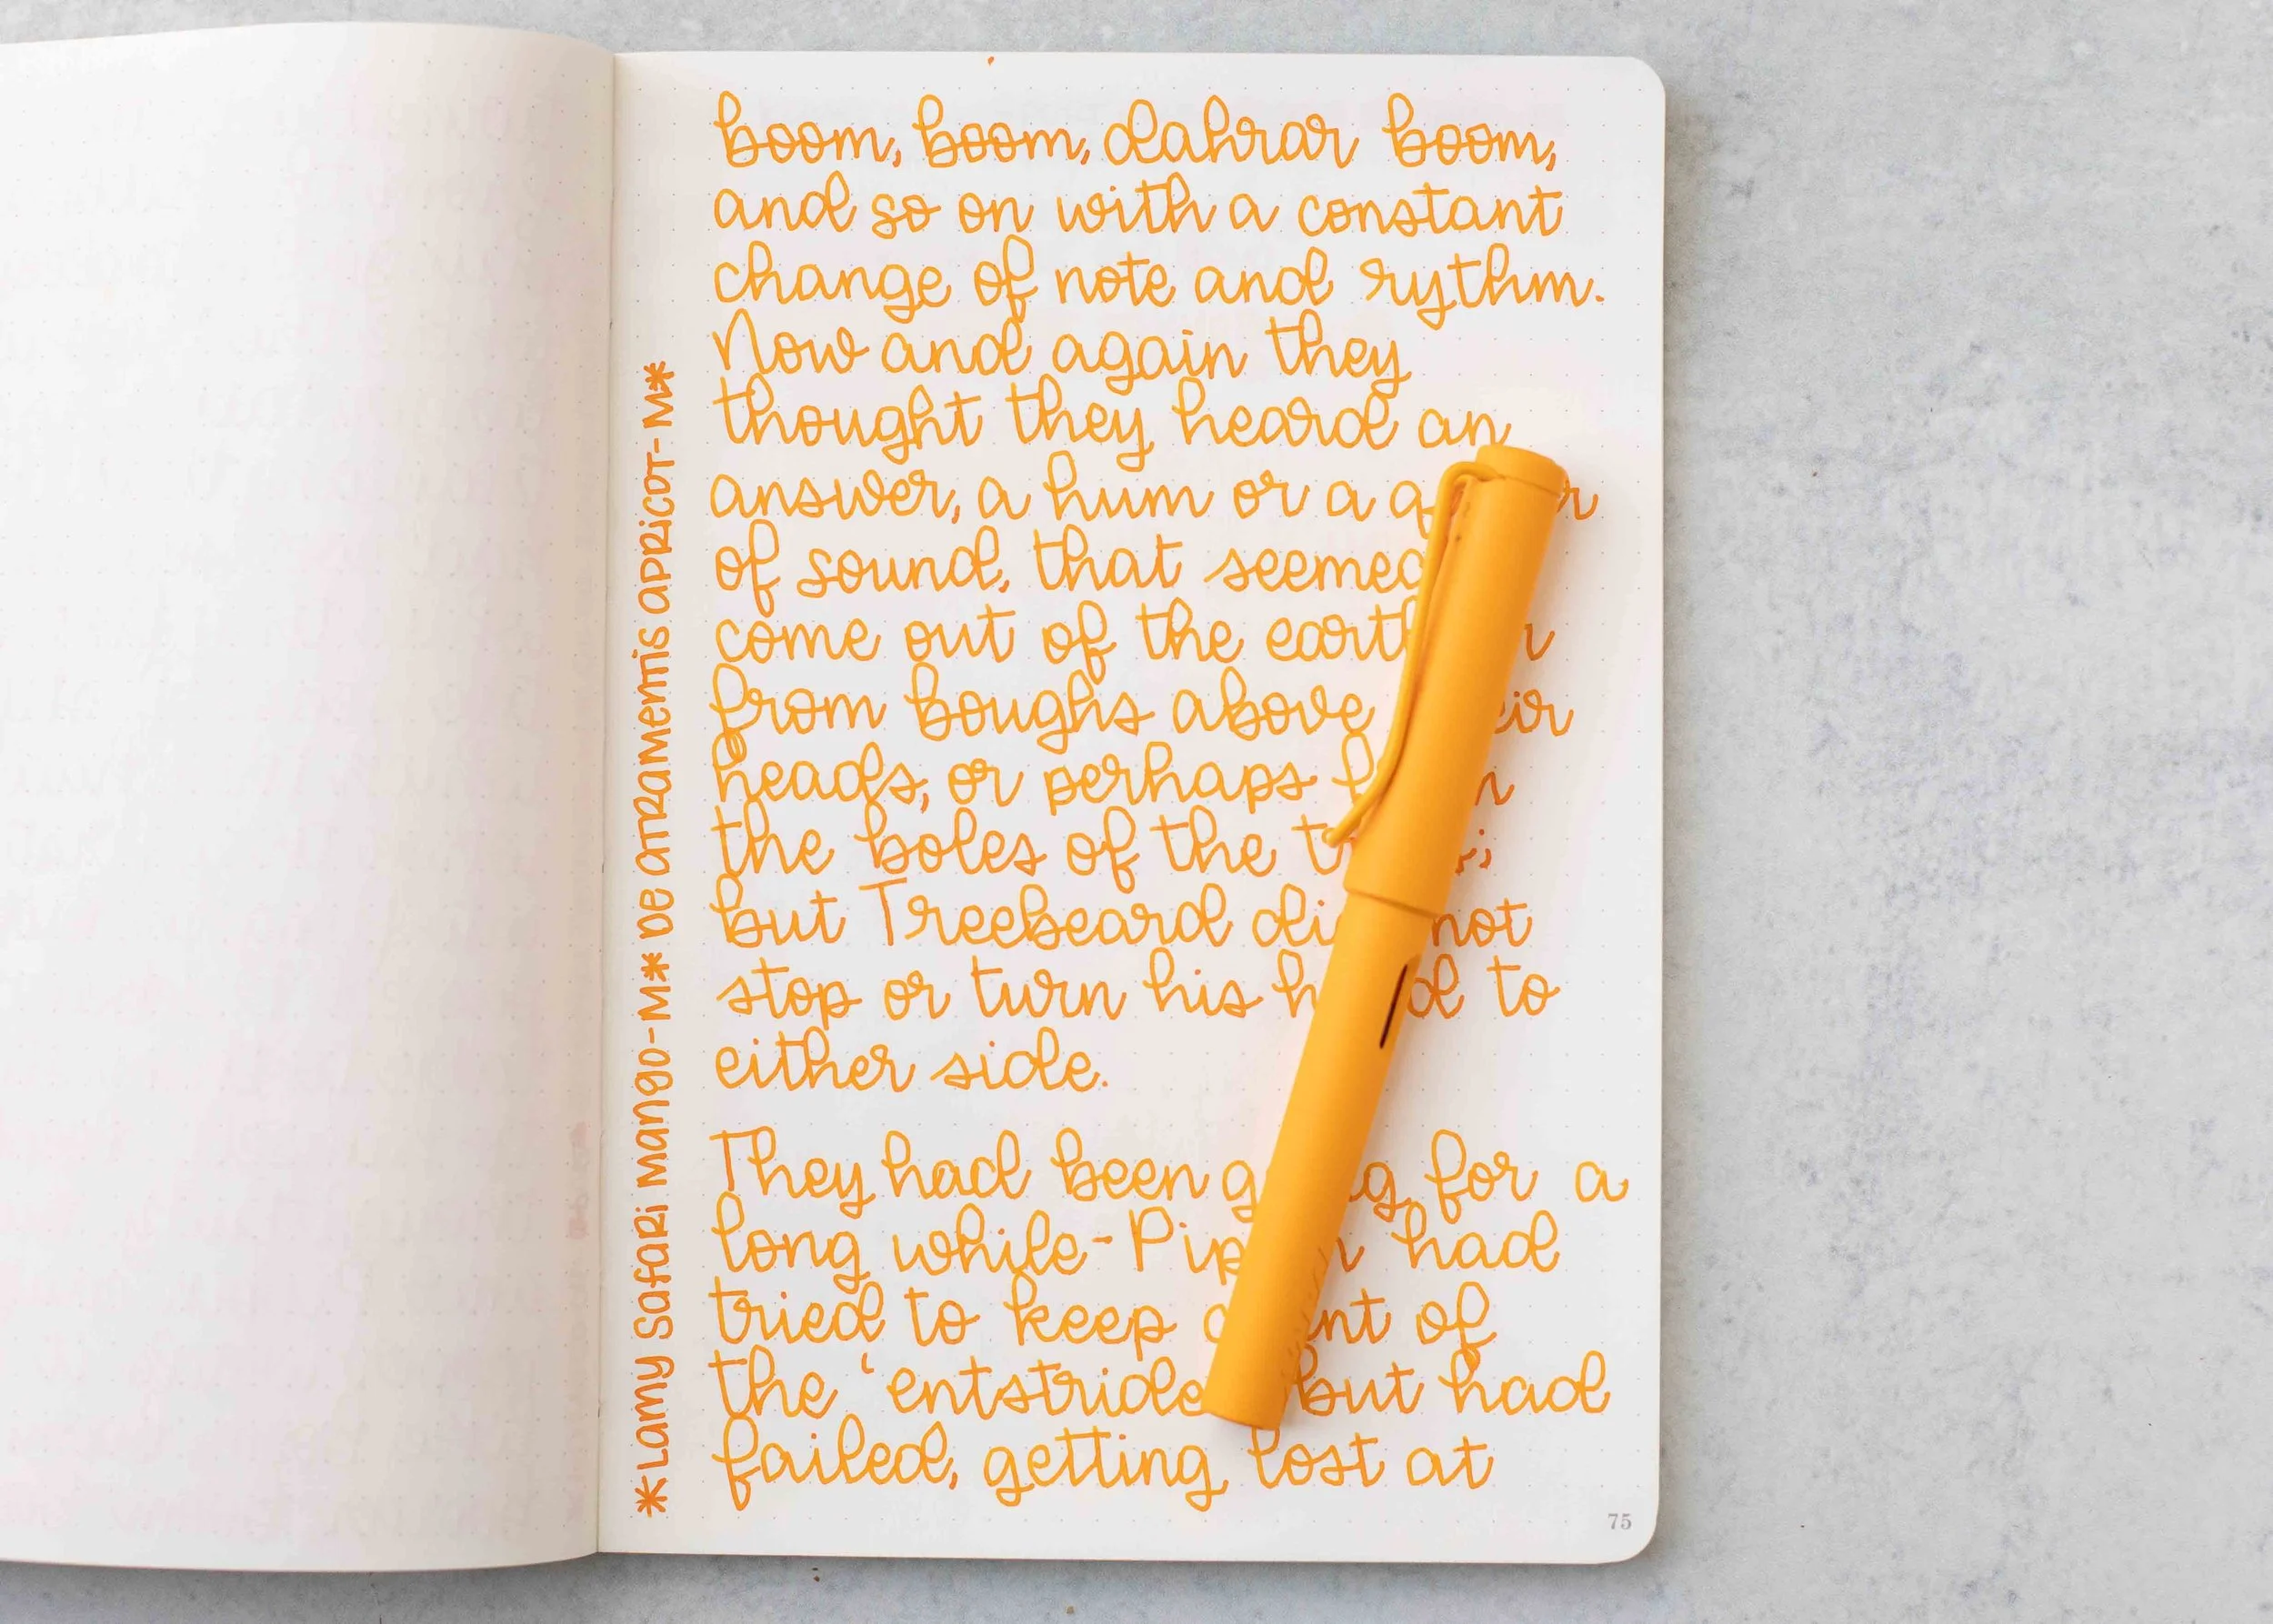 boom, boom, dahrar boom,
and so on with a constant
change of note and rythm.
Now and again they
thought they heard an
answer, a hum or a
of sound, that
come out of the
from boughs above
heads, or perhaps
the boles of the
but Treebeard not
stop or turn his to
either side.
They had been for a
long while- had
tried to keep of
the 'entstrides but had
failed, getting lost at
*Lamy Safari Mango-M* De Atramentis Apricot-M*
75